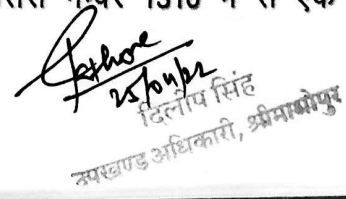 1310 में से एक
25/04/22
दिलीप सिंह
उपखण्ड अधिकारी, श्रीमाधोपुर